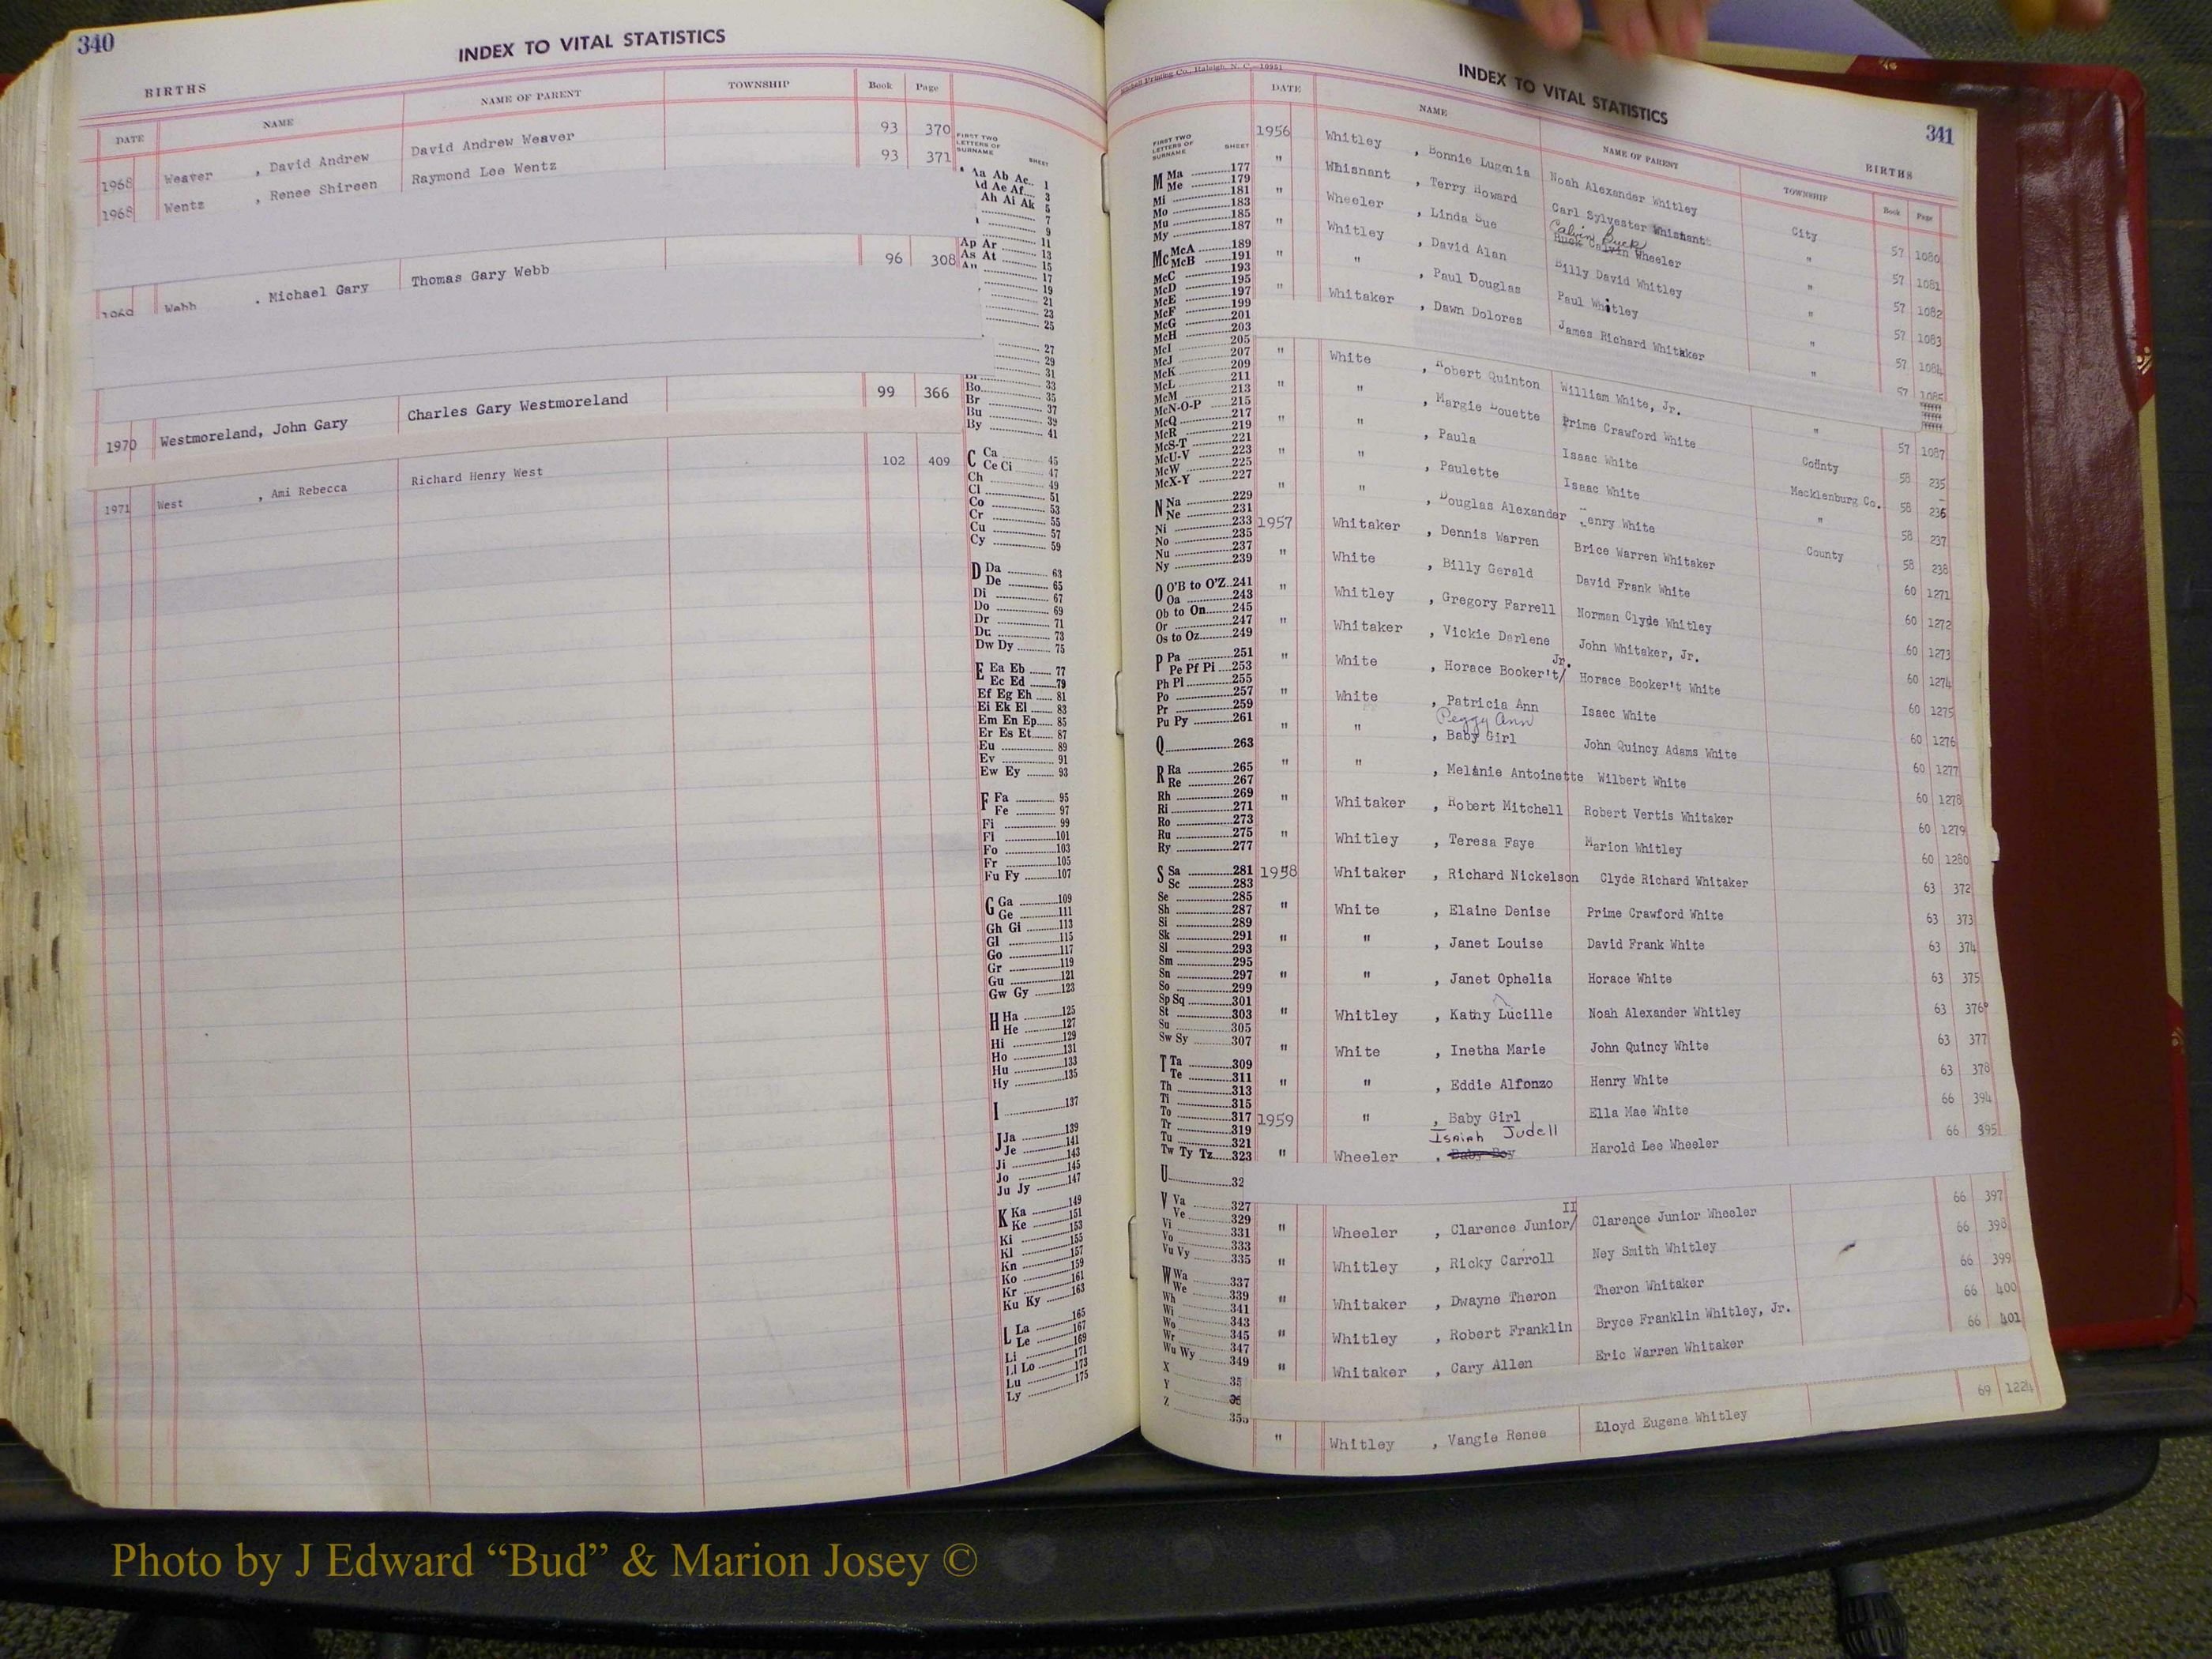 340
INDEX TO VITAL STATISTICS
BIRTHS
DATE NAME NAME OF PARENT TOWNSHIP Book Page
1968 Weaver , David Andrew David Andrew Weaver 93 370
1968 Wentz , Renee Shireen Raymond Lee Wentz 93 371
Webb , Michael Gary Thomas Gary Webb 96 308
1970 Westmoreland, John Gary Charles Gary Westmoreland 99 366
1971 West , Ami Rebecca Richard Henry West 102 409
FIRST TWO LETTERS OF SURNAME SHEET
Aa Ab Ac 1
Ad Ae Af 3
Ah Ai Ak 5
7
9
Ap Ar 11
As At 13
15
17
19
21
23
25
27
29
31
33
Bo 35
Br 37
Bu 39
By 41
C Ca 45
Ce Ci 47
Ch 49
Cl 51
Co 53
Cr 55
Cu 57
Cy 59
D Da 63
De 65
Di 67
Do 69
Dr 71
Du 73
Dw Dy 75
E Ea Eb 77
Ec Ed 79
Ef Eg Eh 81
Ei Ek El 83
Em En Ep 85
Er Es Et 87
Eu 89
Ev 91
Ew Ey 93
F Fa 95
Fe 97
Fi 99
Fl 101
Fo 103
Fr 105
Fu Fy 107
G Ga 109
Ge 111
Gh Gi 113
Gl 115
Go 117
Gr 119
Gu 121
Gw Gy 123
H Ha 125
He 127
Hi 129
Ho 131
Hu 133
Hy 135
I 137
J Ja 139
Je 141
Ji 143
Jo 145
Ju Jy 147
K Ka 149
Ke 151
Ki 153
Kl 155
Kn 157
Ko 159
Kr 161
Ku Ky 163
L La 165
Le 167
Li 169
Ll Lo 171
Lu 173
Ly 175
Printing Co., Raleigh, N. C.—10951
INDEX TO VITAL STATISTICS
341
BIRTHS
FIRST TWO LETTERS OF SURNAME SHEET
M Ma 177
Me 179
Mi 181
Mo 183
Mu 185
My 187
Mc McA 189
McB 191
McC 193
McD 195
McE 197
McF 199
McG 201
McH 203
McI 205
McJ 207
McK 209
McL 211
McM 213
McN-O-P 215
McQ 217
McR 219
McS-T 221
McU-V 223
McW 225
McX-Y 227
N Na 229
Ne 231
Ni 233
No 235
Nu 237
Ny 239
O O'B to O'Z 241
Oa 243
Ob to On 245
Or 247
Os to Oz 249
P Pa 251
Pe Pf Pi 253
Ph Pl 255
Po 257
Pr 259
Pu Py 261
Q 263
R Ra 265
Re 267
Rh 269
Ri 271
Ro 273
Ru 275
Ry 277
S Sa 281
Sc 283
Se 285
Sh 287
Si 289
Sk 291
Sl 293
Sm 295
Sn 297
So 299
Sp Sq 301
St 303
Su 305
Sw Sy 307
T Ta 309
Te 311
Th 313
Ti 315
To 317
Tr 319
Tu 321
Tw Ty Tz 323
U 32
V Va 327
Ve 329
Vi 331
Vo 333
Vu Vy 335
W Wa 337
We 339
Wh 341
Wi 343
Wo 345
Wr 347
Wu Wy 349
X 35
Y
Z 35
DATE NAME NAME OF PARENT TOWNSHIP Book Page
1956 Whitley , Bonnie Lugenia Noah Alexander Whitley City 57 1080
" Whisnant , Terry Howard Carl Sylvester Whisnant " 57 1081
Calvin Buck
" Wheeler , Linda Sue Buck Calvin Wheeler " 57 1082
" Whitley , David Alan Billy David Whitley " 57 1083
" " , Paul Douglas Paul Whitley " 57 1084
" Whitaker , Dawn Dolores James Richard Whitaker 57 1085
" White , Robert Quinton William White, Jr. " 57 1087
" " , Margie Louette Prime Crawford White County 58 235
" " , Paula Isaac White Mecklenburg Co. 58 236
" " , Paulette Isaac White " 58 237
" " , Douglas Alexander Henry White County 58 238
1957 Whitaker , Dennis Warren Brice Warren Whitaker 60 1271
" White , Billy Gerald David Frank White 60 1272
" Whitley , Gregory Farrell Norman Clyde Whitley 60 1273
" Whitaker , Vickie Darlene John Whitaker, Jr. 60 1274
" White , Horace Booker't/ Jr. Horace Booker't White 60 1275
" White , Patricia Ann Isaac White 60 1276
Peggy Ann
" " , Baby Girl John Quincy Adams White 60 1277
" " , Melanie Antoinette Wilbert White 60 1278
" Whitaker , Robert Mitchell Robert Vertis Whitaker 60 1279
" Whitley , Teresa Faye Marion Whitley 60 1280
1958 Whitaker , Richard Nickelson Clyde Richard Whitaker 63 372
" White , Elaine Denise Prime Crawford White 63 373
" " , Janet Louise David Frank White 63 374
" " , Janet Ophelia Horace White 63 375
" Whitley , Kathy Lucille Noah Alexander Whitley 63 376
" White , Inetha Marie John Quincy White 63 377
" " , Eddie Alfonzo Henry White 63 378
1959 " , Baby Girl Ella Mae White 66 394
Isaiah Judell
" Wheeler , Baby Boy Harold Lee Wheeler 66 395
" Wheeler , Clarence Junior/ II Clarence Junior Wheeler 66 397
" Whitley , Ricky Carroll Ney Smith Whitley 66 398
" Whitaker , Dwayne Theron Theron Whitaker 66 399
" Whitley , Robert Franklin Bryce Franklin Whitley, Jr. 66 400
" Whitaker , Cary Allen Eric Warren Whitaker 66 401
" Whitley , Vangie Renee Lloyd Eugene Whitley 69 1224
Photo by J Edward “Bud” & Marion Josey ©